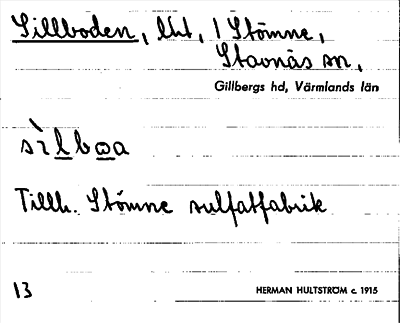 Sillboden, lht, i Stömne,
Stavnäs sn,
Gillbergs hd, Värmlands län
sìlbωa
Tillh. Stömne sulfatfabrik
13 HERMAN HULTSTRÖM c. 1915